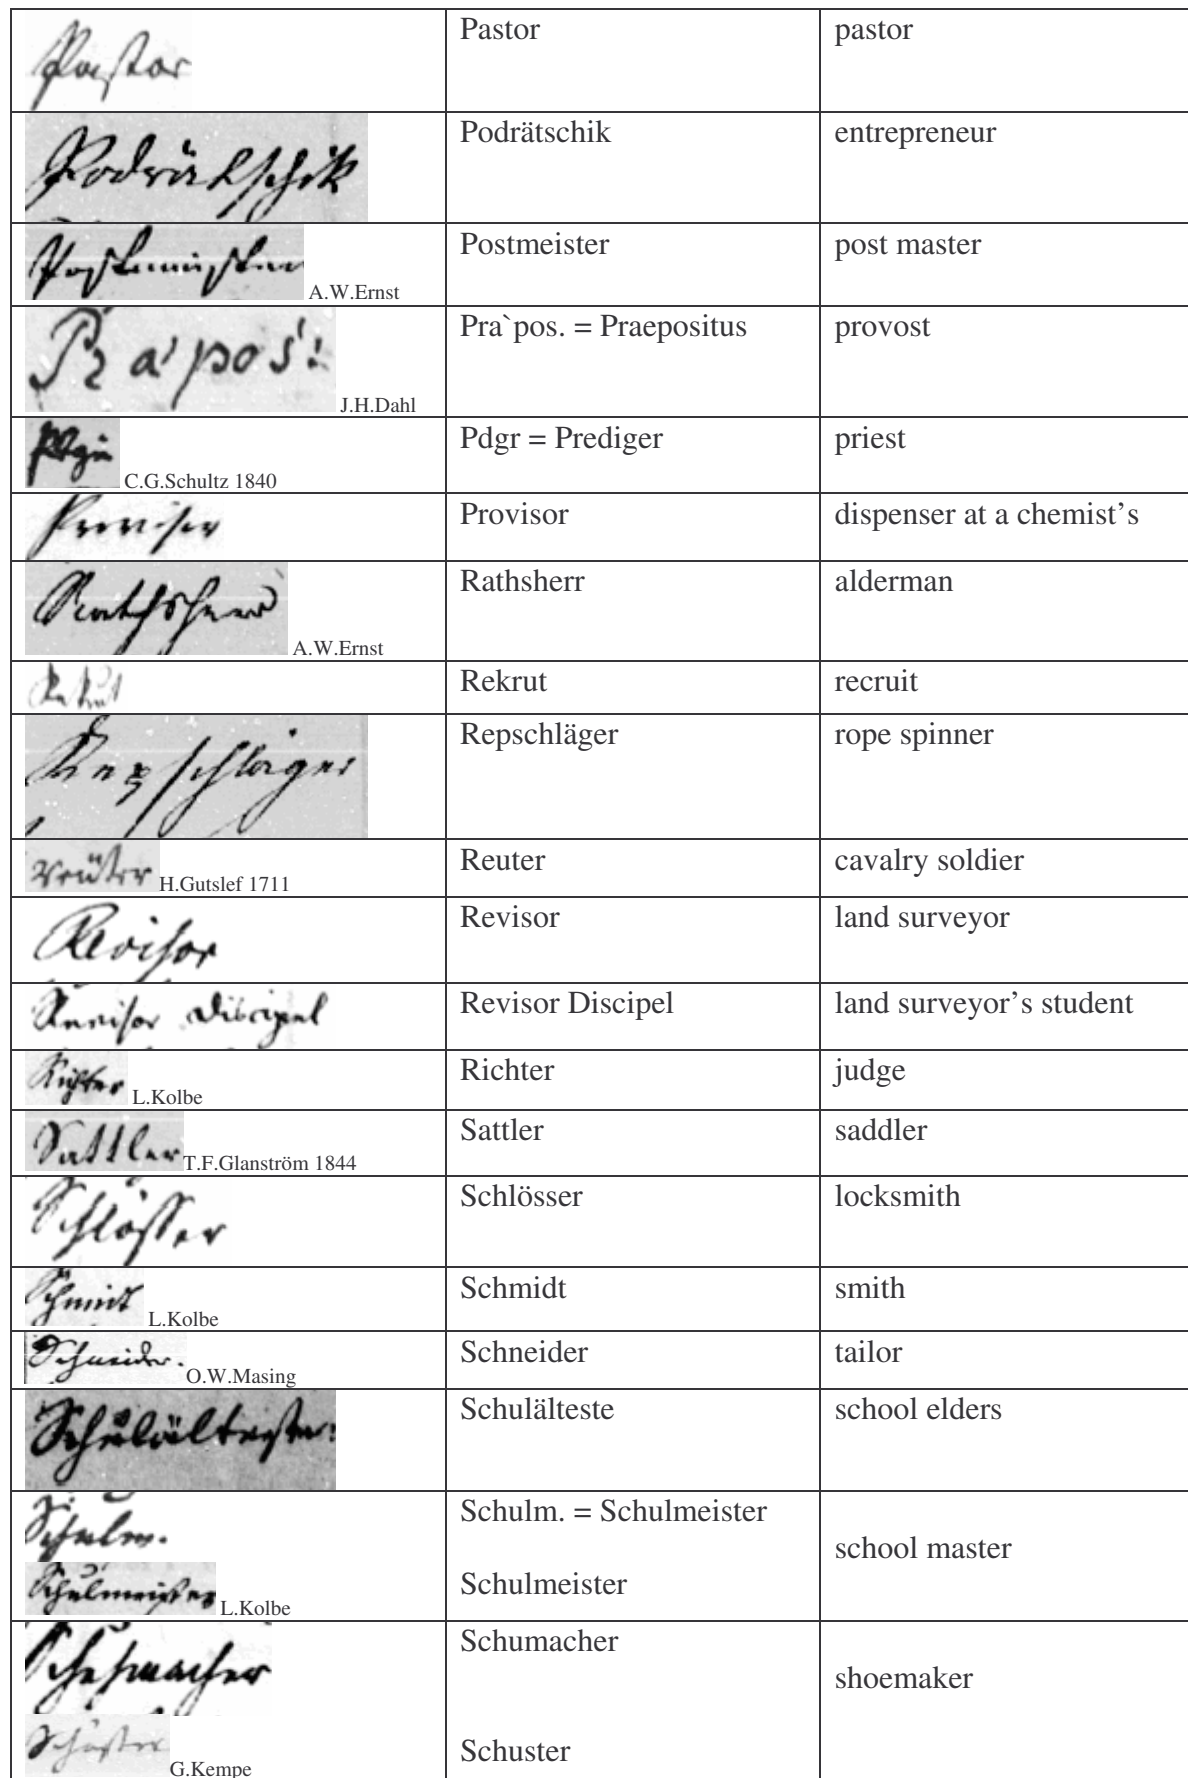 Pastor Pastor pastor
Podrätschik Podrätschik entrepreneur
Postmeister A.W.Ernst Postmeister post master
Pra'pos: J.H.Dahl Pra`pos. = Praepositus provost
Pdgr C.G.Schultz 1840 Pdgr = Prediger priest
Provisor Provisor dispenser at a chemist's
Rathsherr A.W.Ernst Rathsherr alderman
Rekrut Rekrut recruit
Repschläger Repschläger rope spinner
reuter H.Gutslef 1711 Reuter cavalry soldier
Revisor Revisor land surveyor
Revisor Discipel Revisor Discipel land surveyor's student
Richter L.Kolbe Richter judge
Sattler T.F.Glanström 1844 Sattler saddler
Schlösser Schlösser locksmith
Schmidt L.Kolbe Schmidt smith
Schneider. O.W.Masing Schneider tailor
Schulältester: Schulälteste school elders
Schulm. Schulm. = Schulmeister
school master
Schulmeister L.Kolbe Schulmeister
Schuhmacher Schumacher
shoemaker
Schuster G.Kempe Schuster